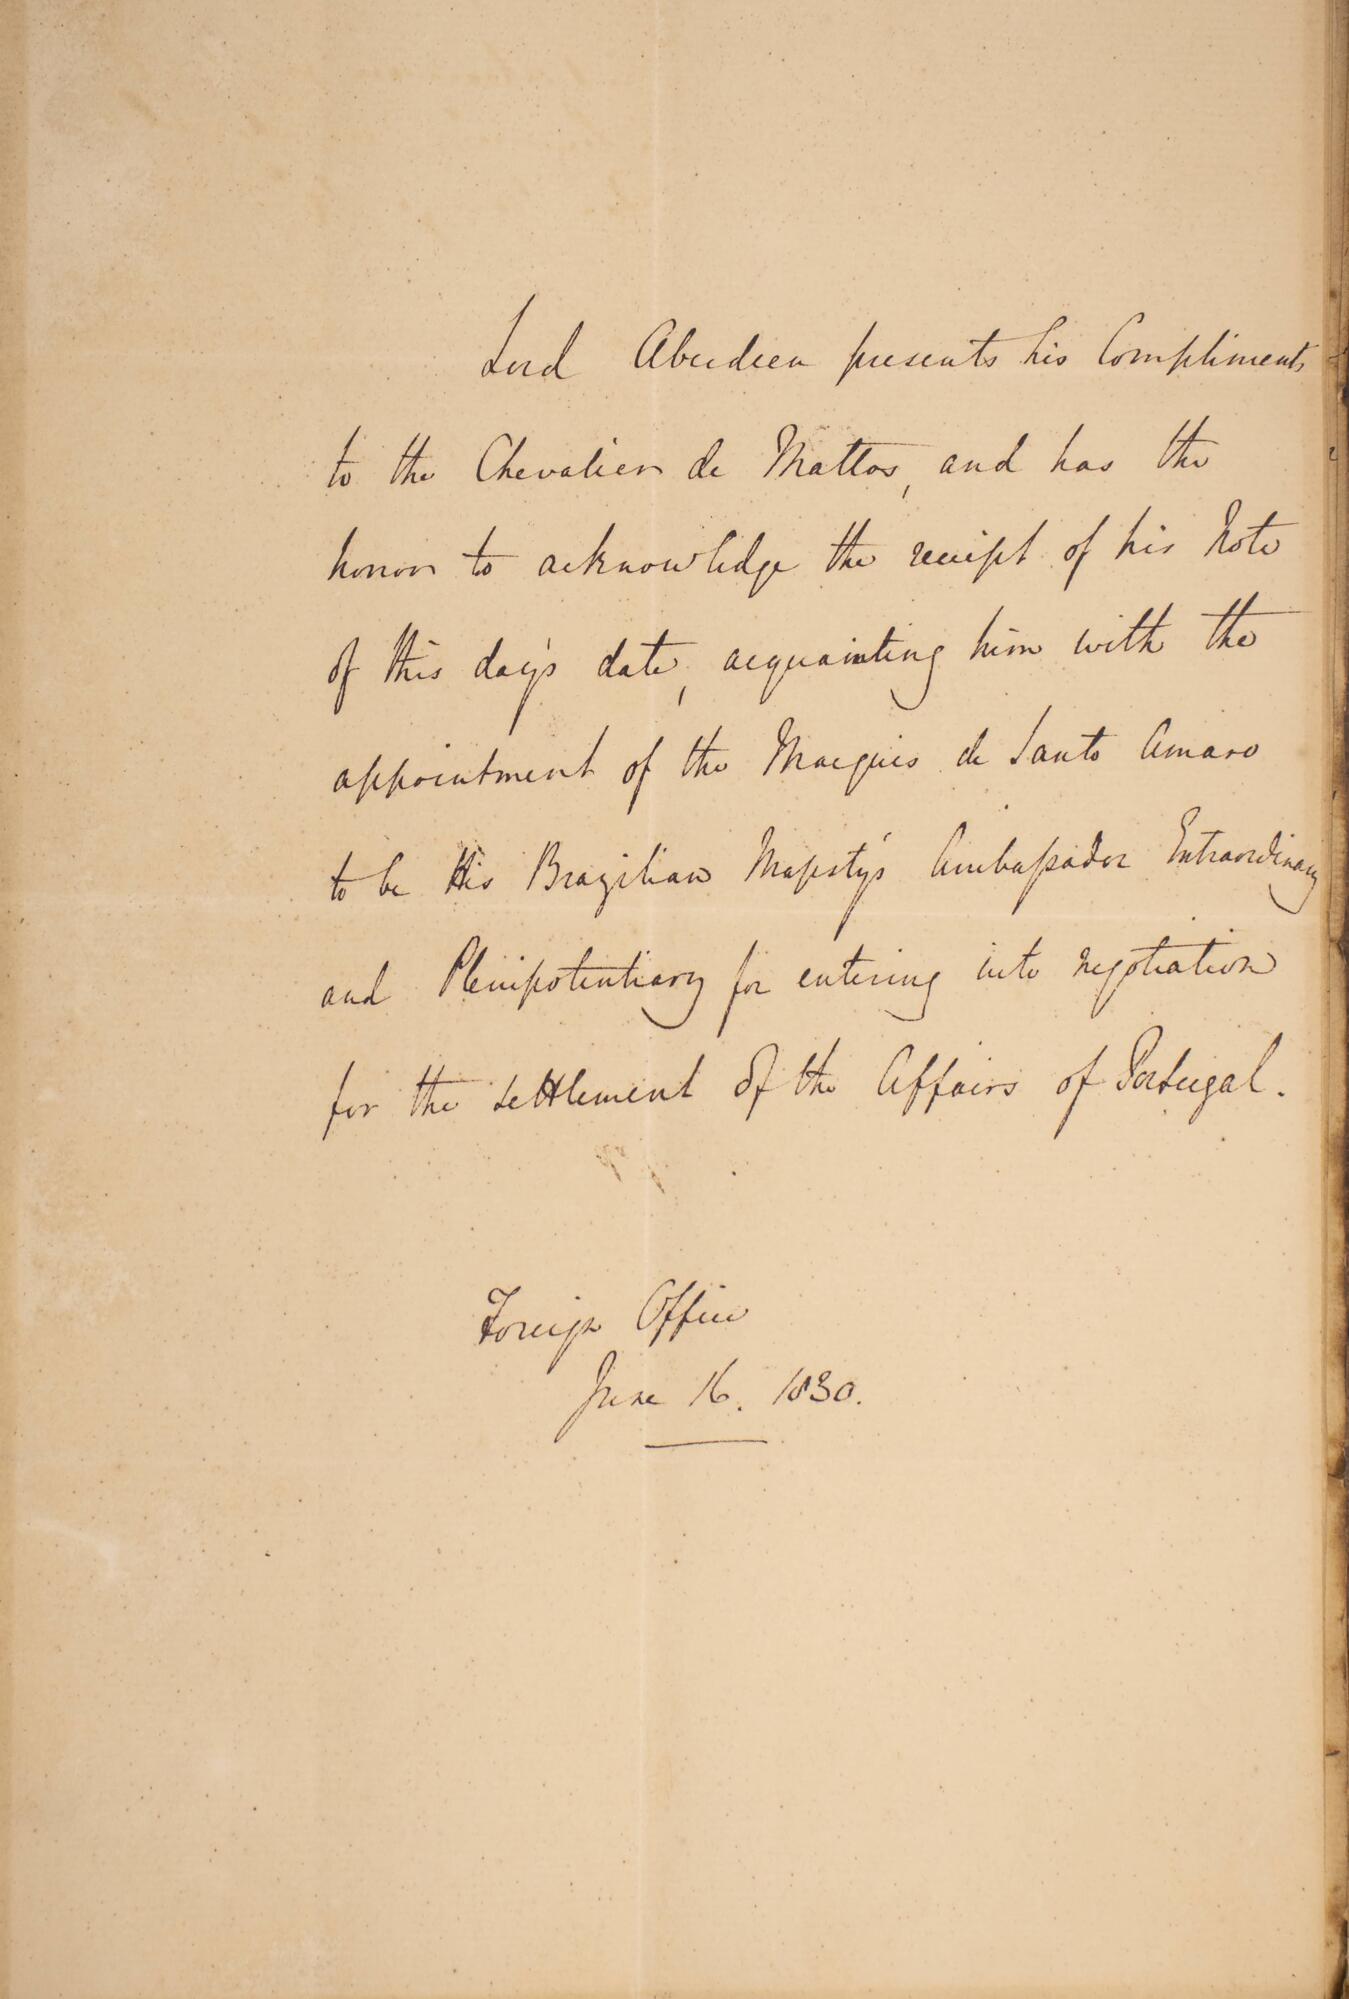 Lord Aberdeen presents his Compliments
to the Chevalier de Mattos, and has the
honor to acknowledge the receipt of his Note
of this day's date, acquainting him with the
appointment of the Marquis de Santo Amaro
to be His Brazilian Majesty's Ambassador Extraordinary
and Plenipotentiary for entering into negotiation
for the settlement of the Affairs of Portugal.
Foreign Office
June 16. 1830.